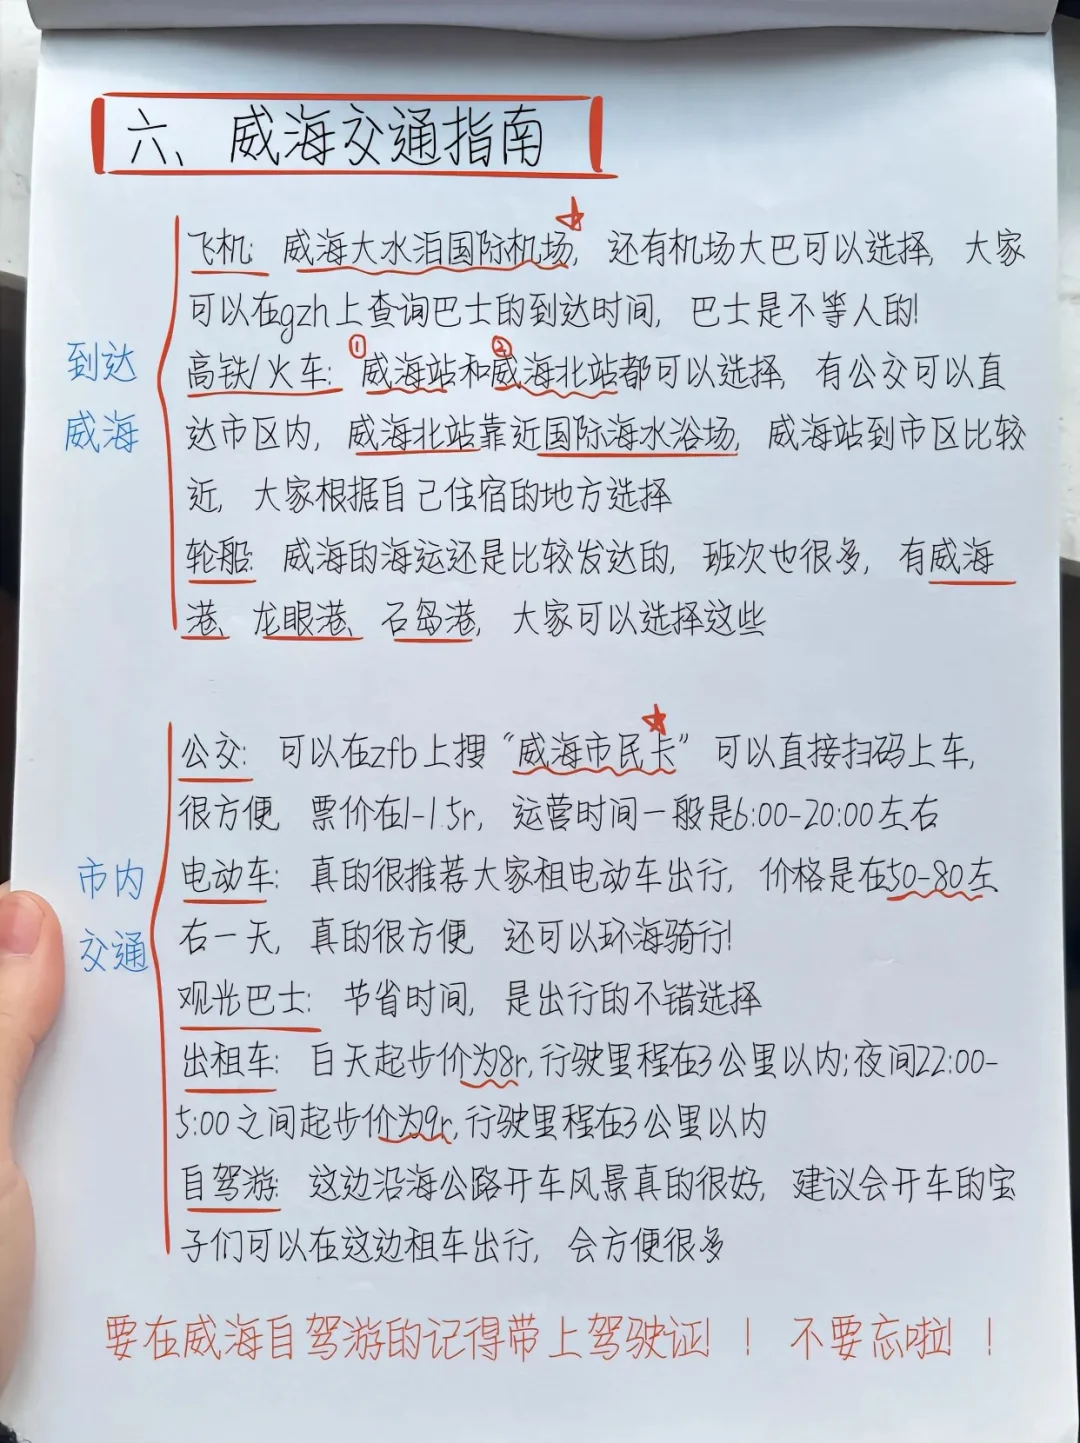 六、威海交通指南
飞机: 威海大水泊国际机场, 还有机场大巴可以选择, 大家
可以在gzh上查询巴士的到达时间, 巴士是不等人的!
① ②
高铁/火车: 威海站和威海北站都可以选择, 有公交可以直
到达
达市区内, 威海北站靠近国际海水浴场, 威海站到市区比较
威海
近, 大家根据自己住宿的地方选择
轮船: 威海的海运还是比较发达的, 班次也很多, 有威海
港、龙眼港、石岛港, 大家可以选择这些
公交: 可以在zfb上搜“威海市民卡”可以直接扫码上车,
很方便, 票价在1-1.5r, 运营时间一般是6:00-20:00左右
市内
电动车: 真的很推荐大家租电动车出行, 价格是在50-80左
交通
右一天, 真的很方便, 还可以环海骑行!
观光巴士: 节省时间, 是出行的不错选择
出租车: 白天起步价为8r,行驶里程在3公里以内;夜间22:00-
5:00之间起步价为9r,行驶里程在3公里以内
自驾游: 这边沿海公路开车风景真的很好, 建议会开车的宝
子们可以在这边租车出行, 会方便很多
要在威海自驾游的记得带上驾驶证!! 不要忘啦!!